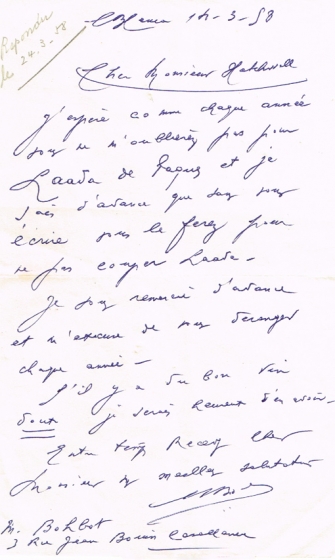 Répondu
le 24.3.58
14-3-58
Cher Monsieur Hatchwell
J'espère comme chaque année
vous ne m'oublierez pas pour
Laada de Paque et je
sais d'avance que sans vous
écrire vous le ferez pour
ne pas couper Laada -
Je vous remercie d'avance
et m'excuse de vous déranger
chaque année -
S'il y a du bon vin
doux je serais d'en avoir -
Entre temps Recevez cher
Monsieur mes meilleurs salutations
M. Bohbot
3 Rue Jean Bouin Casablanca